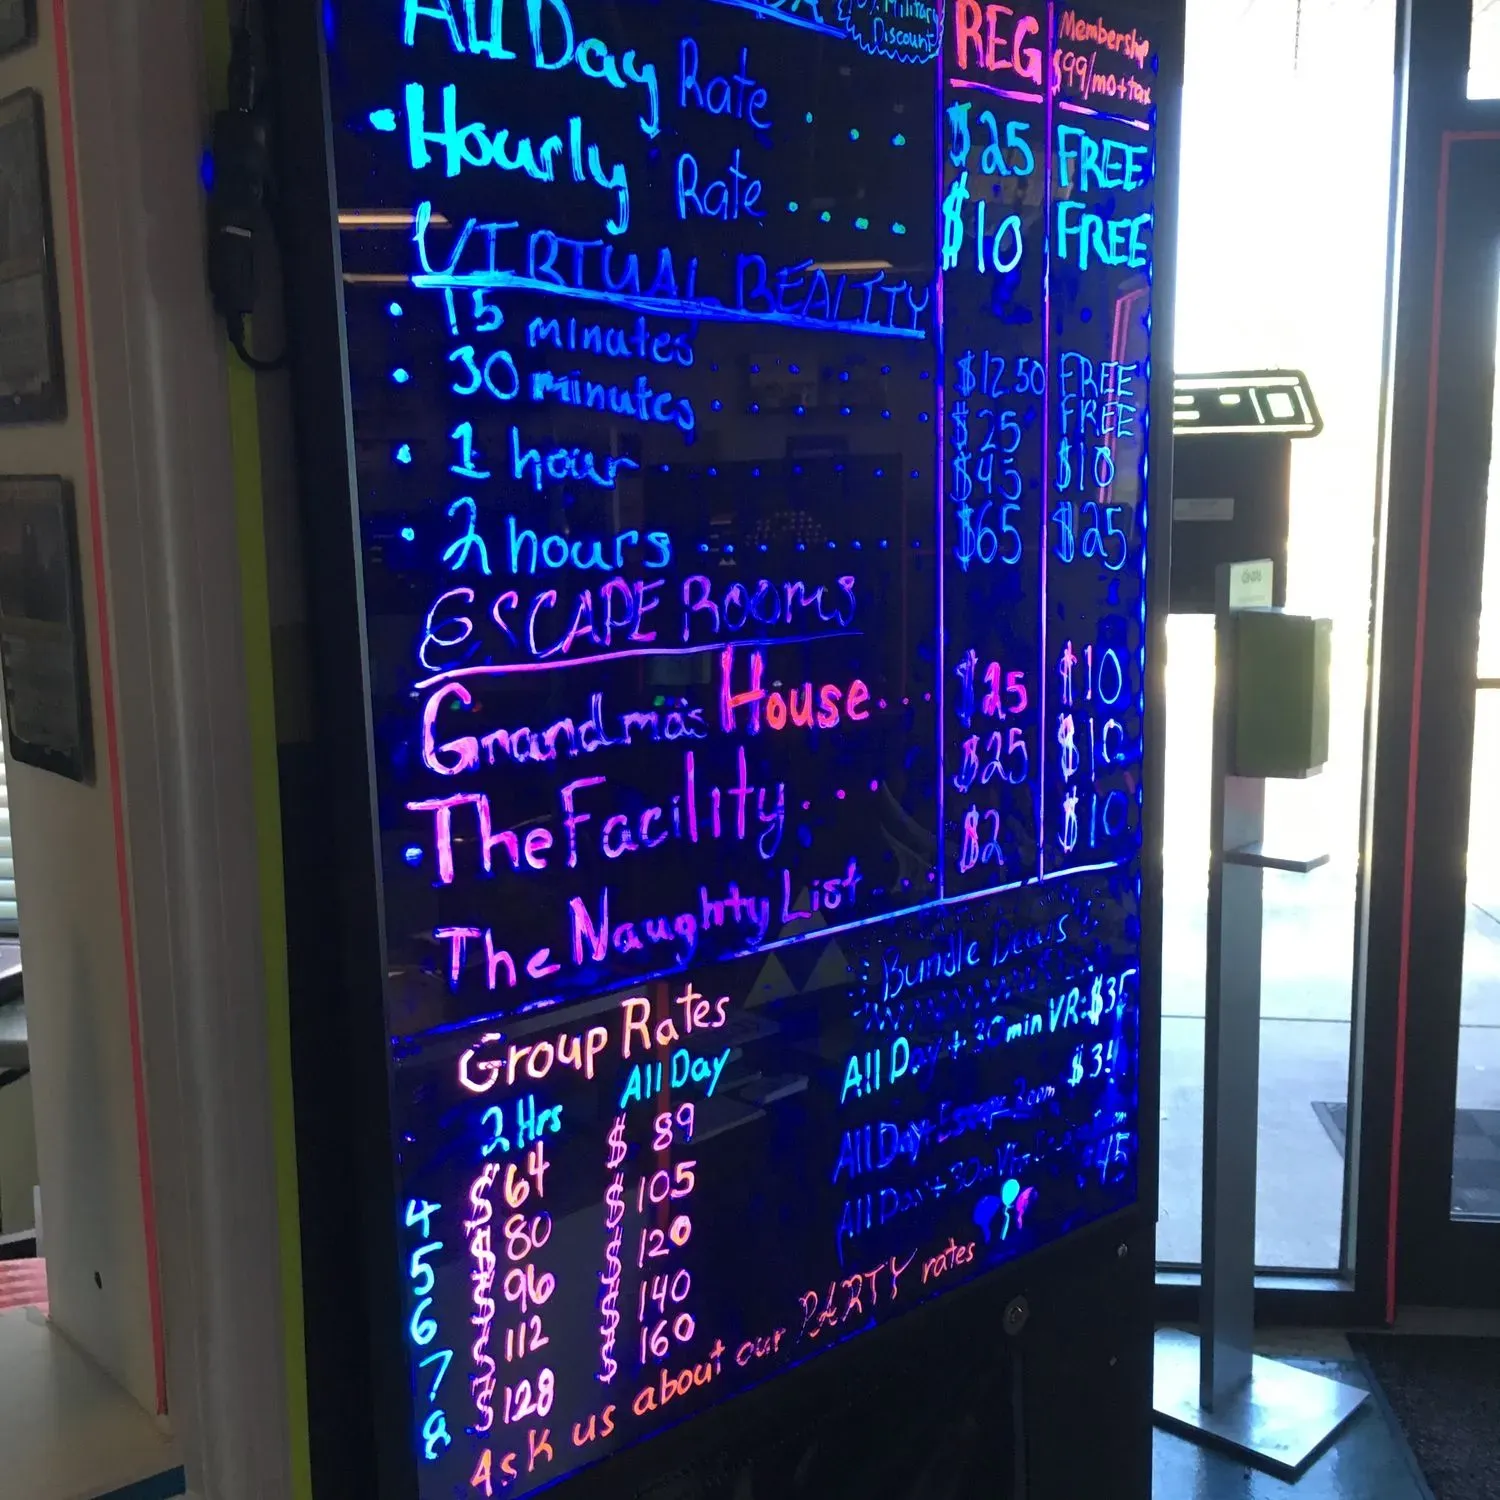 Military
Discount
REG
Membership
$99/mo+tax
All Day Rate .... $25 FREE
Hourly Rate .... $10 FREE
VIRTUAL REALITY
15 minutes $12.50 FREE
30 minutes $25 FREE
1 hour $45 $10
2 hours $65 $25
ESCAPE ROOMS
Grandma's House... $25 $10
The Facility... $25 $10
The Naughty List... $2 $10
Group Rates
2 Hrs All Day
4 $64 $89
5 $80 $105
6 $96 $120
7 $112 $140
8 $128 $160
Bundle Deals
All Day + 30 min VR: $35
All Day + Escape Room $34
All Day + 30 $45
Ask us about our PARTY rates